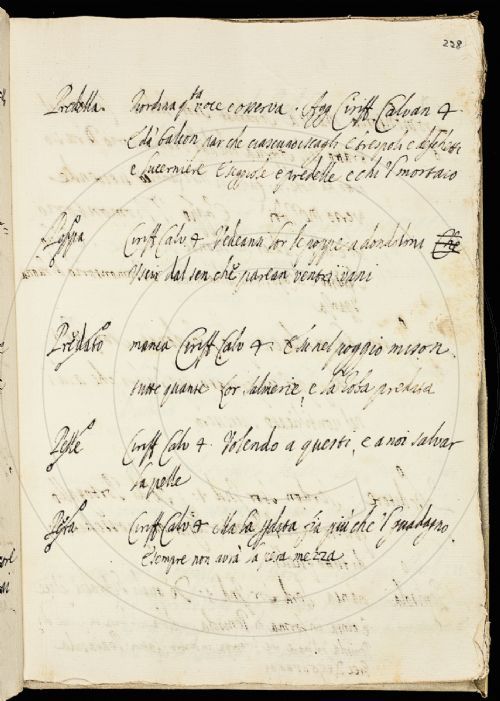 228
Predella. Riordina q.ta voce e osserva. Agg. Ciriff Calvan 4
E da balcon par che ciascuno scagli E trespoli e deschetti
e lucerniere E seggiole e predelle e chi 'l mortaio
Poppa Ciriff Calv. 4. Vedeansi lor le poppe a dondoloni
Uscir dal sen che parean ventri vani
Predato manca Ciriff Calv 4. E lu nel poggio mison
tutte quante Lor salmerie, e la roba predata
Pelle Ciriff Calv 4. Volendo a questi, e a noi salvar
la pelle
Pera Ciriff Calv 4. Ma la gita fia più che 'l guadagno
E sempre non avrà la pera mezza